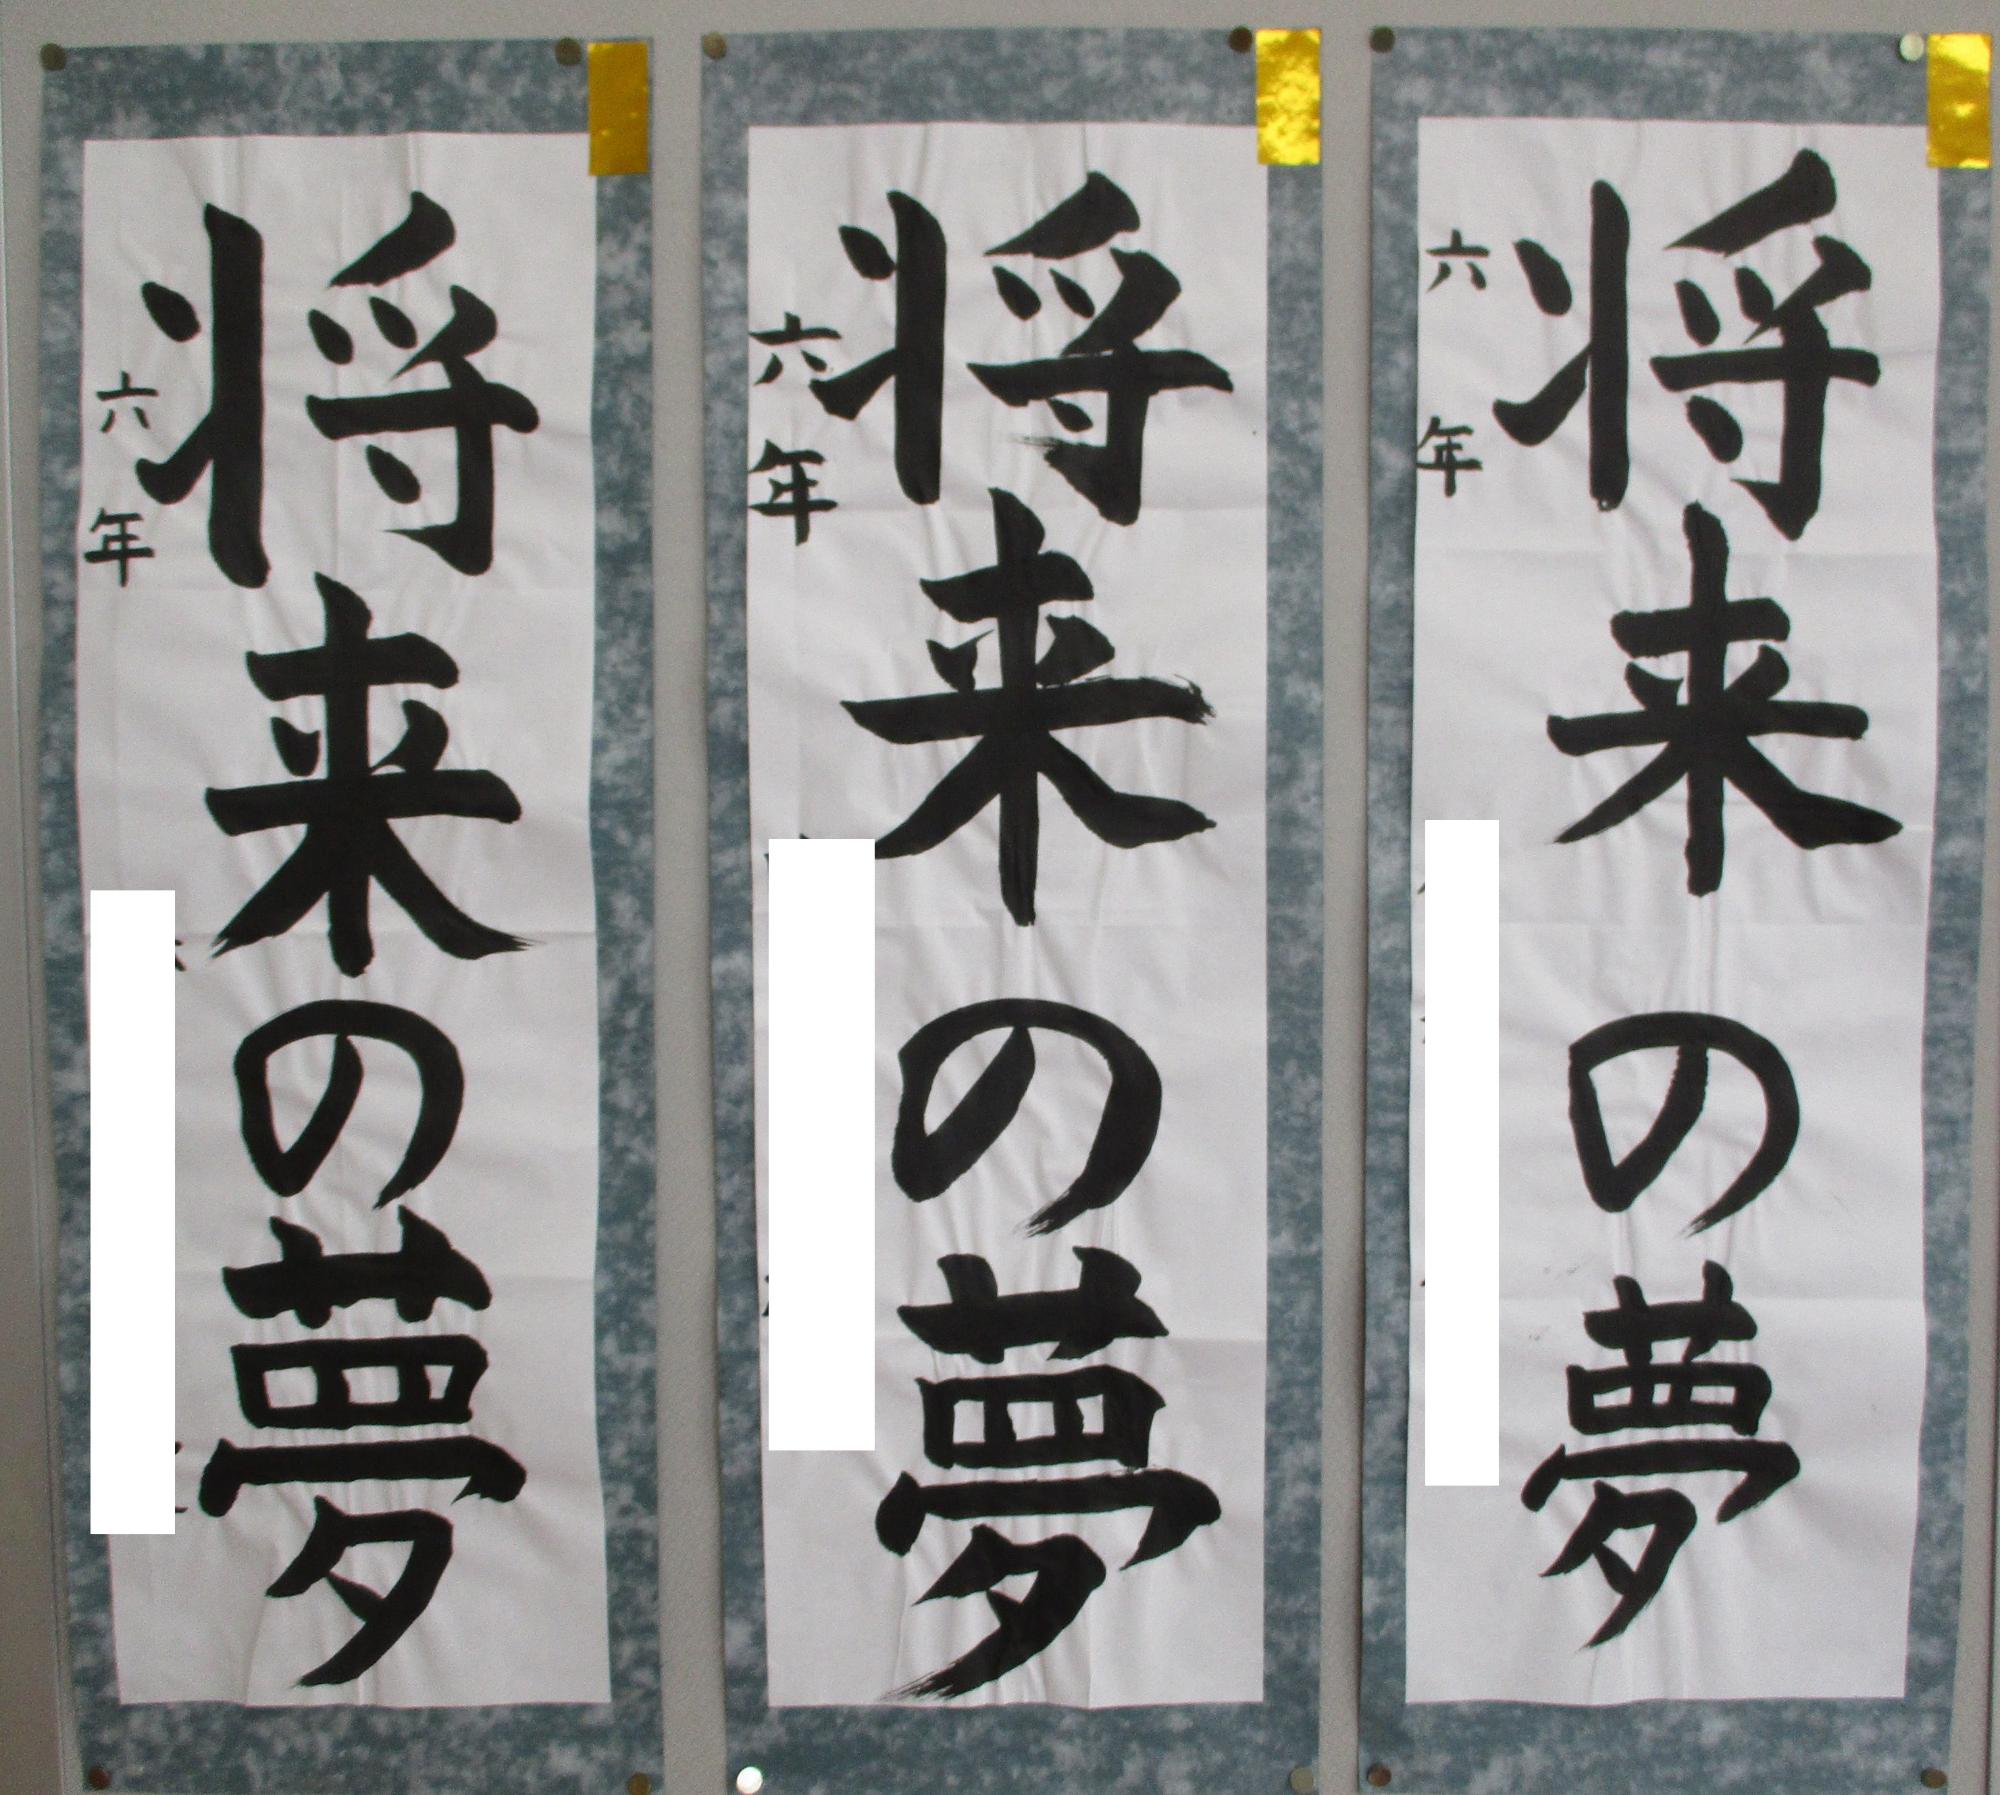 将来の夢
六年
将来の夢
六年
将来の夢
六年